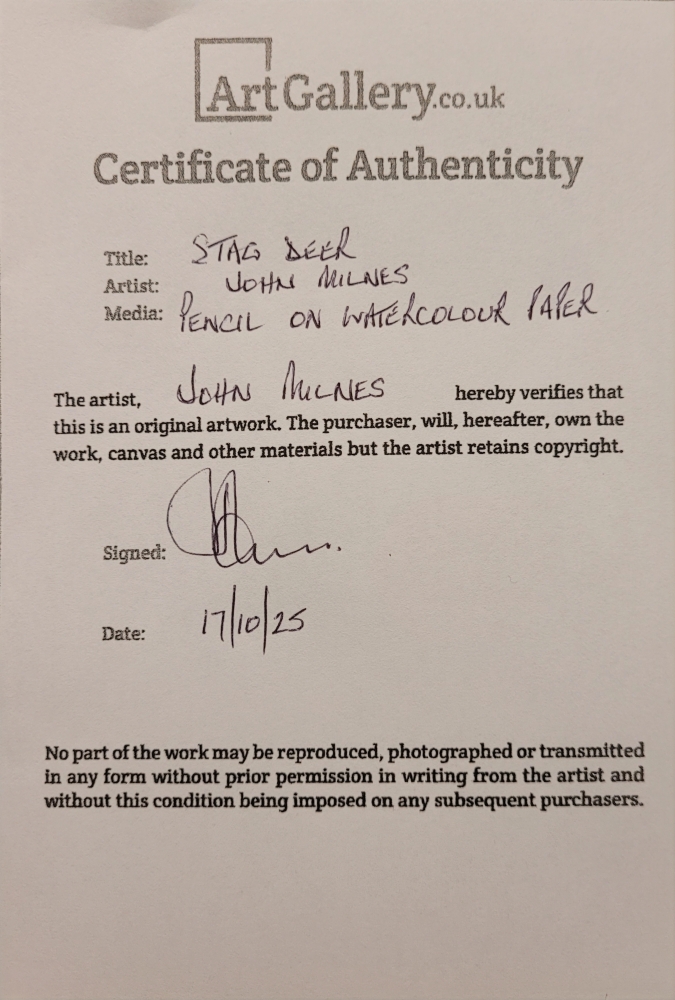 ArtGallery.co.uk
Certificate of Authenticity
Title: STAG DEER
Artist: JOHN MILNES
Media: PENCIL ON WATERCOLOUR PAPER
The artist, JOHN MILNES hereby verifies that
this is an original artwork. The purchaser, will, hereafter, own the
work, canvas and other materials but the artist retains copyright.
Signed:
Date: 17/10/25
No part of the work may be reproduced, photographed or transmitted
in any form without prior permission in writing from the artist and
without this condition being imposed on any subsequent purchasers.